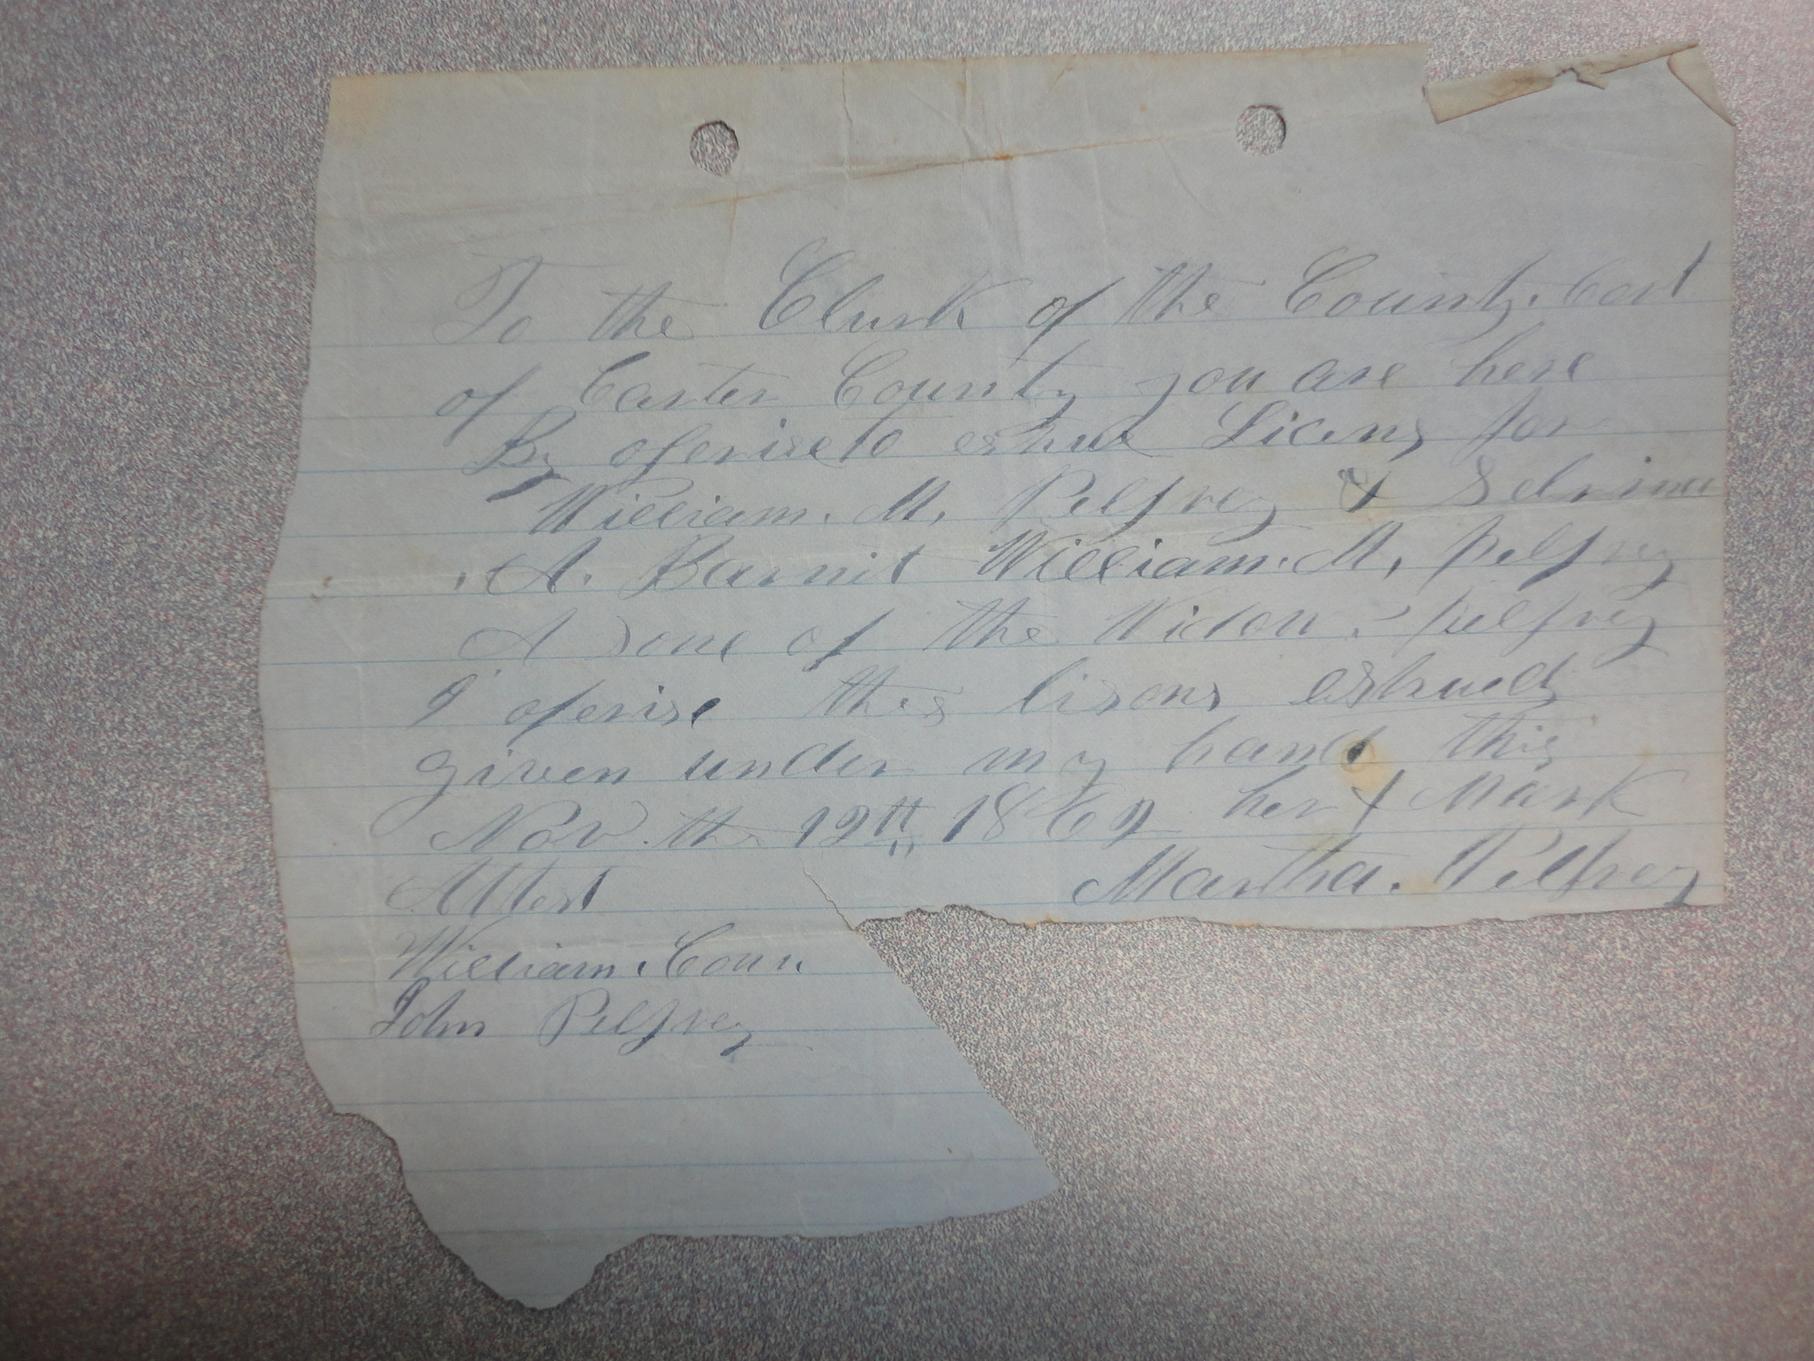 To the Clurk of the County. Cort
of Carter County you are here
By oferise to eshue Licens for
William. M. Pelfrey & Sebrinu
A. Barnit William. M, pelfrey
A sone of the Widow pelfrey
I oferise thes lisons eshued
given under my hand this
Nov. the 12th 1869 her X Mark
Attest Martha. Pelfrey
William. Conn.
John Pelfrey